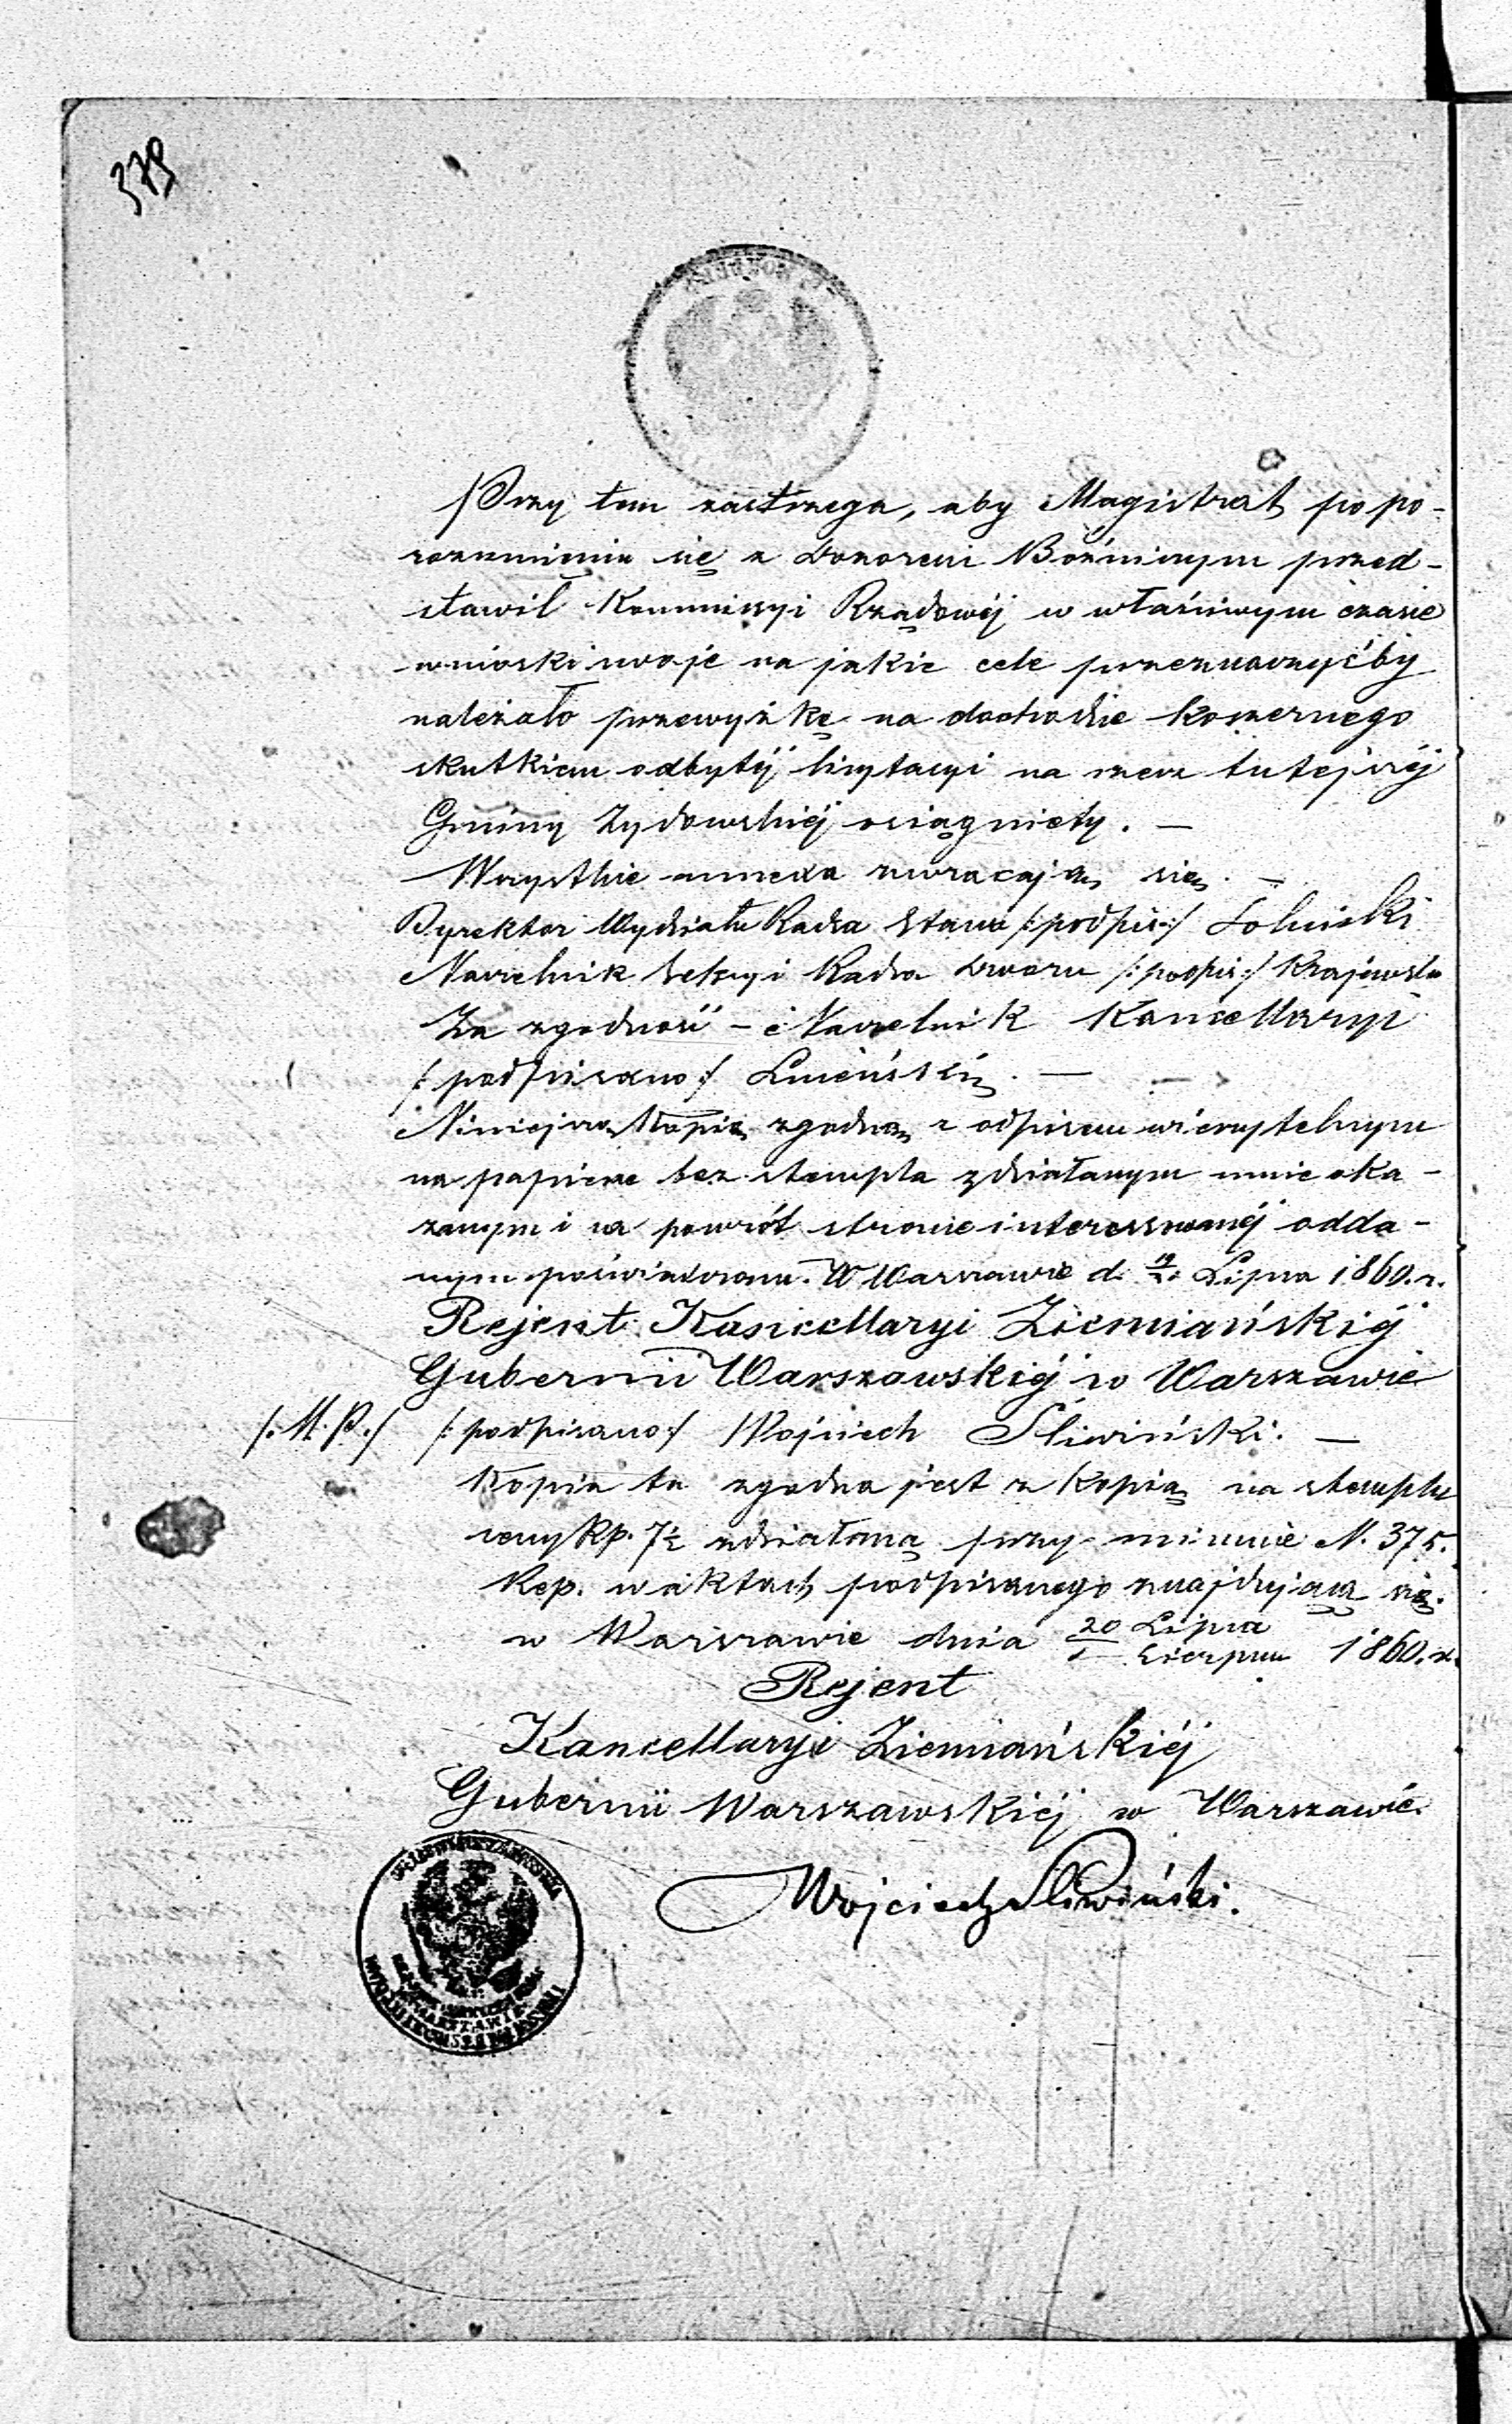 379
Przy tem zastrzega, aby Magistrat po po-
rozumieniu się z Dozorem Bóżniczym przed-
stawił Kommissyi Rządowéj w właściwym czasie
wnioski swoje na jakie cele przeznaczyćby
należało przewyżkę na dochodzie koszernego
skutkiem odbytéj licytacyi na rzecz tutejszéj
Gminy Żydowskiéj osiągnięty. —
Wszystkie annexa zwracają się. —
Dyrektor Wydziału Radca Stanu /:podpis:/
Naczelnik Sekcyi Radca Dworu /:podpis:/ Krajewski
Za zgodność – Naczelnik Kancellaryi
/:podpisano:/ —
Niniejszą Kopią zgodną z odpisem wierzytelnym
na papierze bez stempla zdziałanym mnie oka-
zanym i na powrót stronie interessowanéj odda-
nym poświadczam. W Warszawie d. Lipca 1860. r.
Rejent Kancellaryi Ziemiańskiéj
Gubernii Warszawskiéj w Warszawie
/:M.P.:/ /:podpisano:/ Wojciech Śliwiński. —
Kopia ta zgodna jest z Kopią na stemplu
ceny Kp. 7½ zdziałaną przy minucie N. 375.
Rep. w aktach podpisanego znajdującą się.
w Warszawie dnia 20 Lipca / 1 Sierpnia 1860. r.
Rejent
Kancellaryi Ziemiańskiéj
Gubernii Warszawskiéj w Warszawie.
Wojciech Śliwiński.